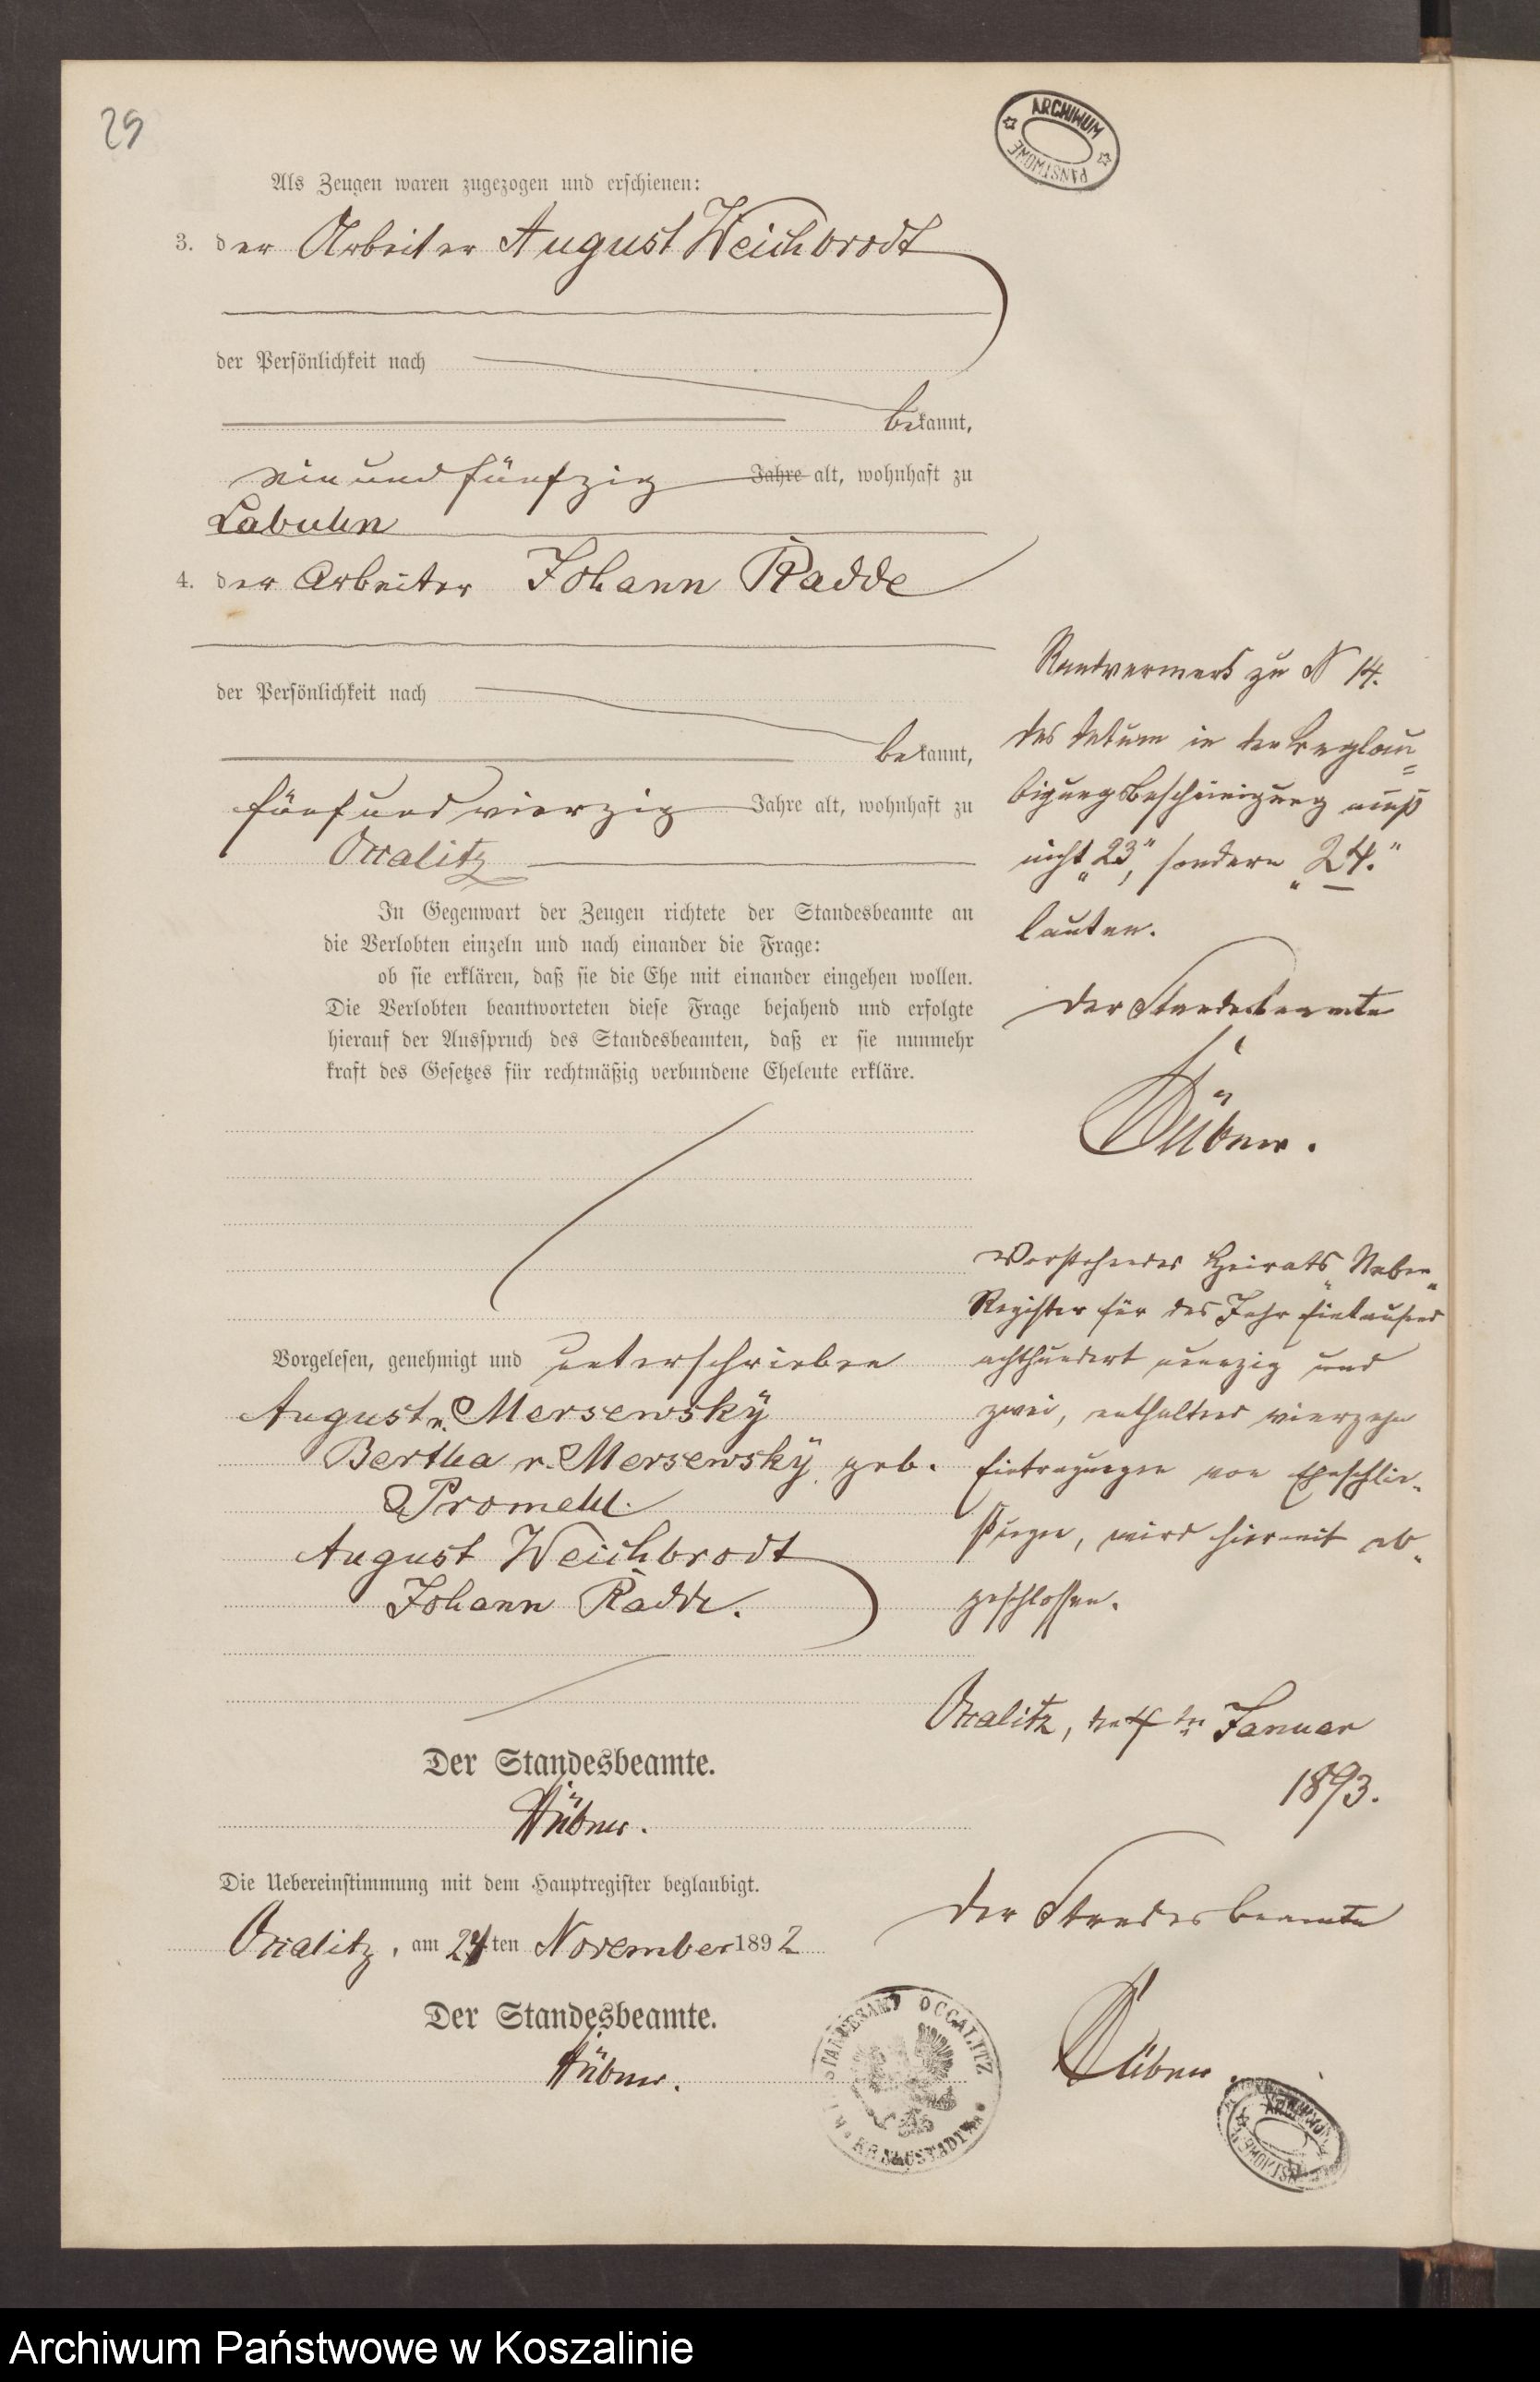 29
ARCHIWUM PAŃSTWOWE
Als Zeugen waren zugezogen und erschienen:
3. der Arbeiter August Weichbrodt
der Persönlichkeit nach
bekannt,
ein und fünfzig Jahre alt, wohnhaft zu
Labuhn
4. der Arbeiter Johann Radde
der Persönlichkeit nach
bekannt,
fünf und vierzig Jahre alt, wohnhaft zu
Occalitz
In Gegenwart der Zeugen richtete der Standesbeamte an
die Verlobten einzeln und nach einander die Frage:
ob sie erklären, daß sie die Ehe mit einander eingehen wollen.
Die Verlobten beantworteten diese Frage bejahend und erfolgte
hierauf der Ausspruch des Standesbeamten, daß er sie nunmehr
kraft des Gesetzes für rechtmäßig verbundene Eheleute erkläre.
Vorgelesen, genehmigt und unterschrieben
August v. Mersewsky
Bertha v. Mersewsky geb.
Promehl.
August Weichbrodt
Johann Radde.
Der Standesbeamte.
Hübner.
Die Uebereinstimmung mit dem Hauptregister beglaubigt.
Occalitz, am 24ten November 1892
Der Standesbeamte.
Hübner.
STANDESAMT OCCALITZ
Randvermerk zu N 14.
Das Datum in der Beglau=
bigungsbescheinigung muß
nicht „23", sondern „24."
lauten.
Der Standesbeamte
Hübner.
Vorstehendes Heirats-Neben-
Register für das Jahr Eintausend
achthundert neunzig und
zwei, enthaltend vierzehn
Eintragungen von Eheschlie-
ßungen, wird hiermit ab-
geschlossen.
Occalitz, den 4ten Januar
1893.
Der Standesbeamte
Hübner.
Archiwum Państwowe w Koszalinie